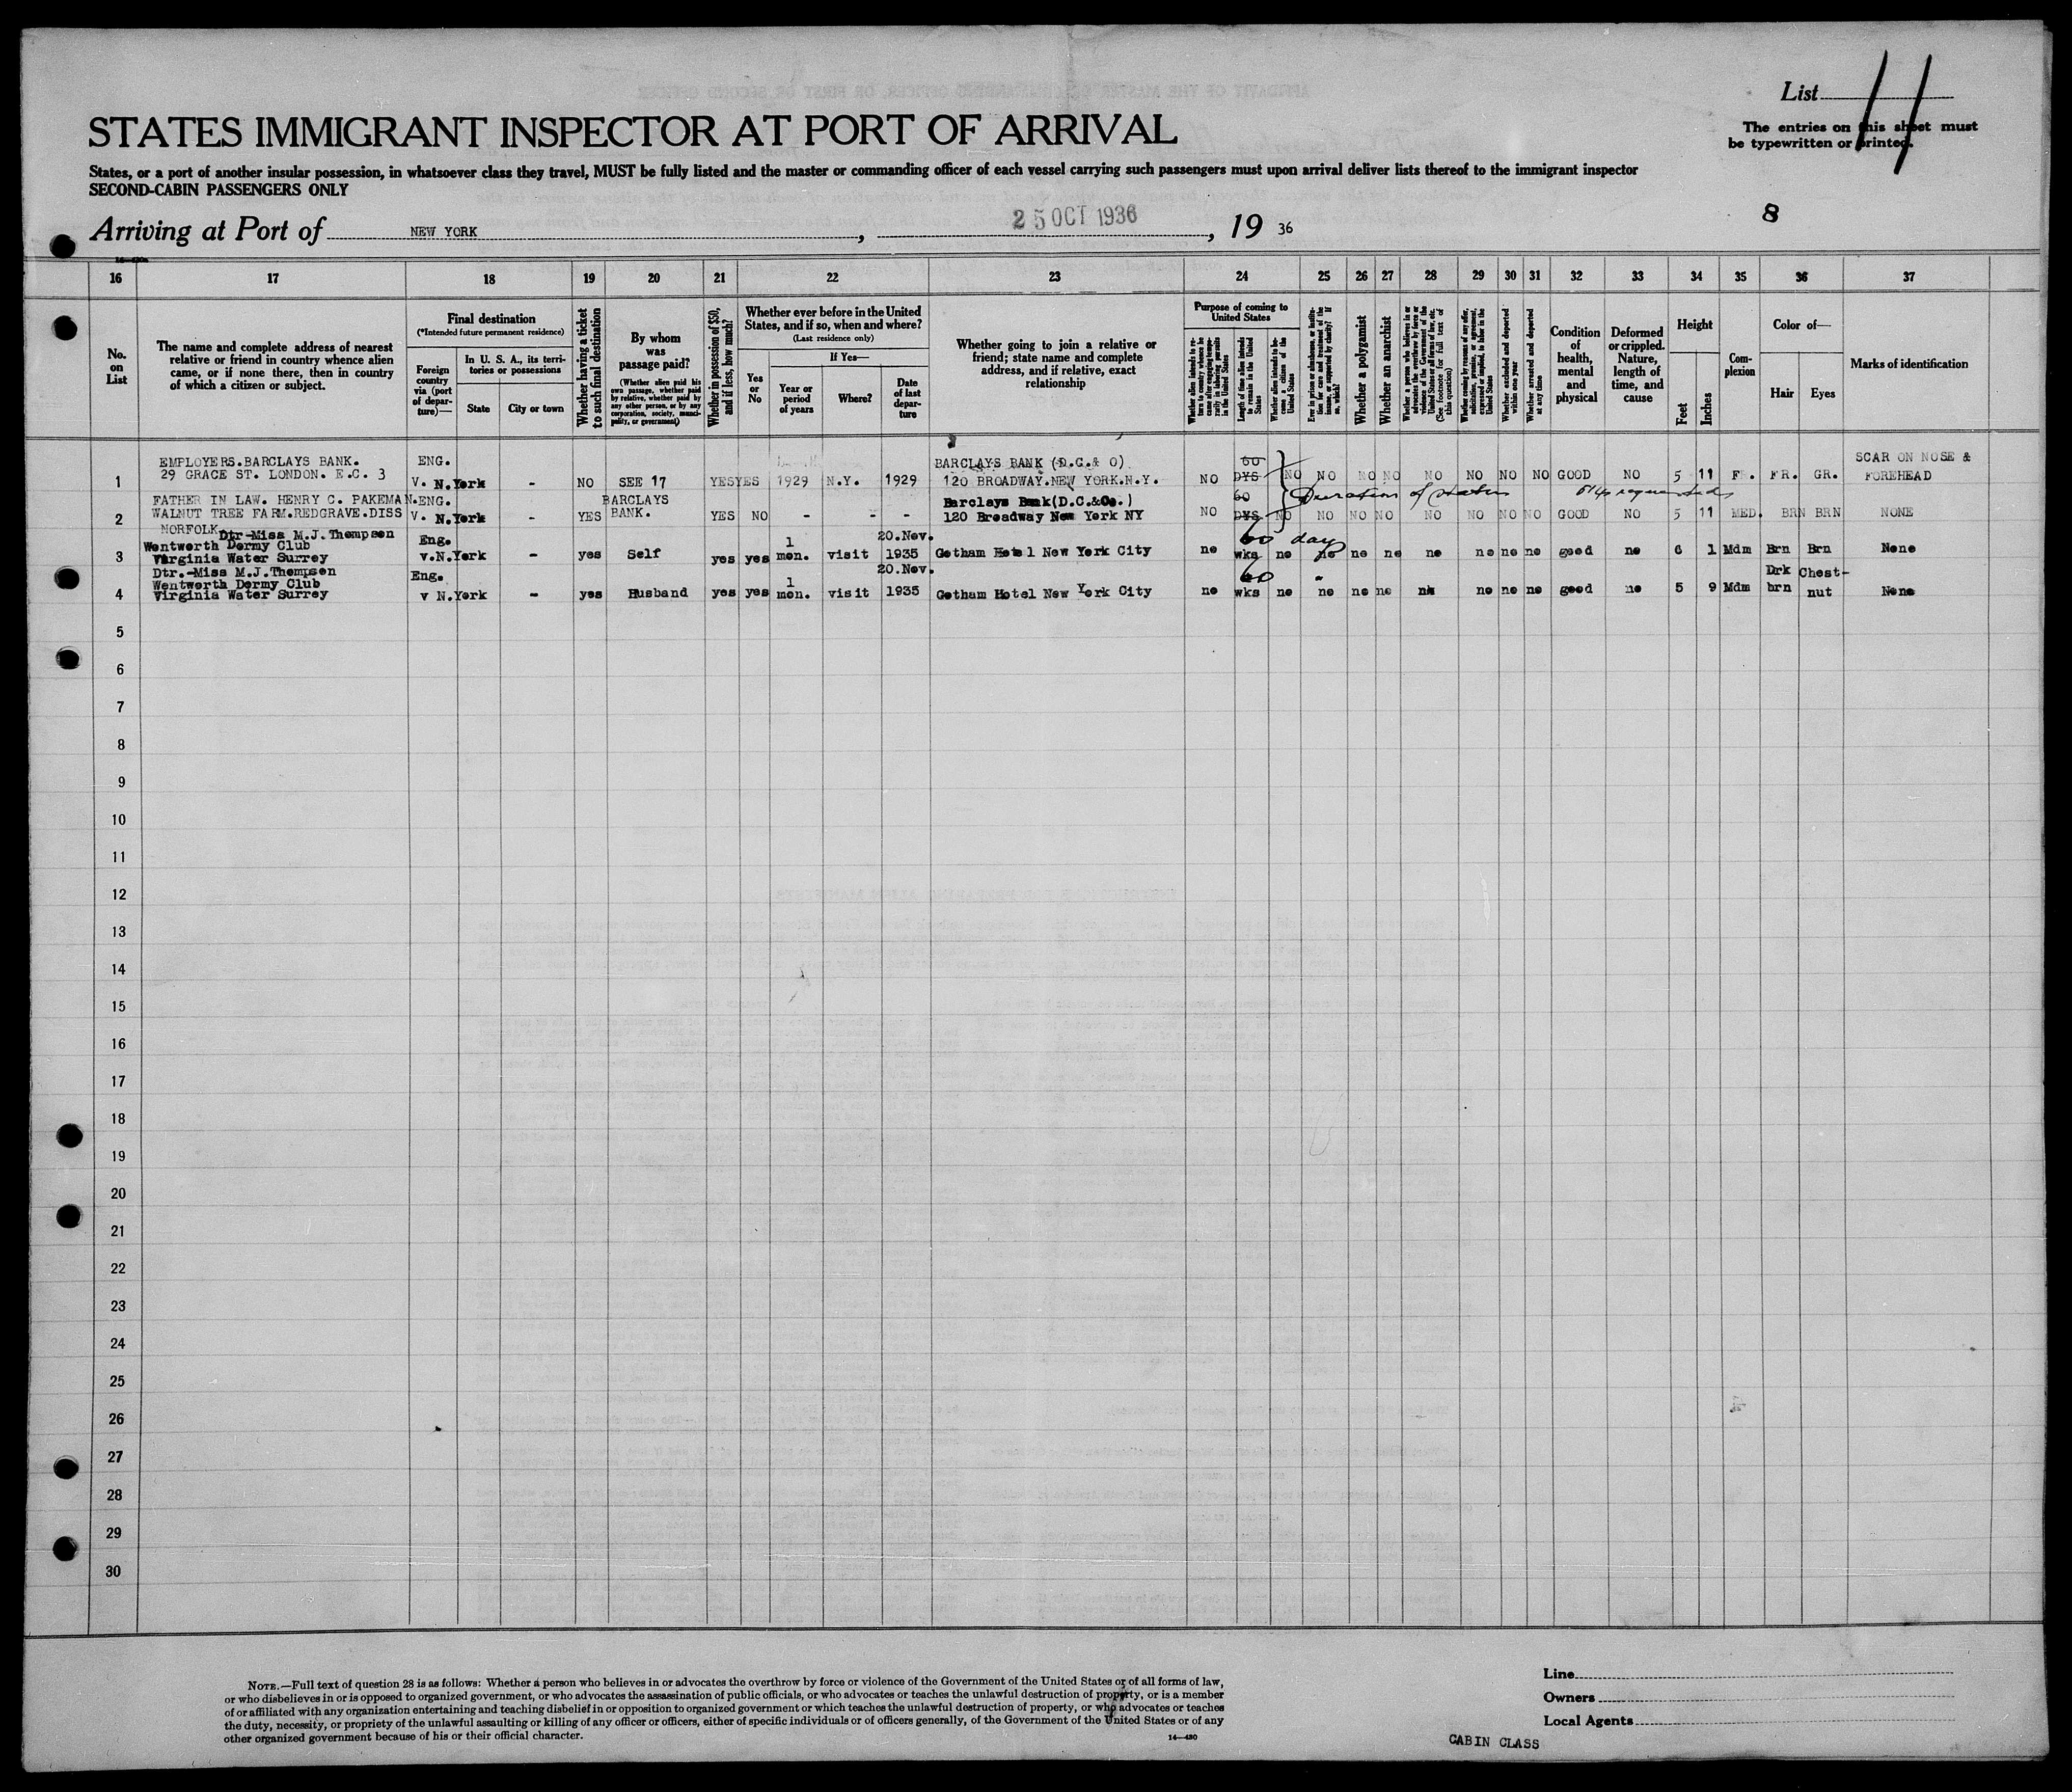 List 11
The entries on this sheet must
be typewritten or printed.
STATES IMMIGRANT INSPECTOR AT PORT OF ARRIVAL
States, or a port of another insular possession, in whatsoever class they travel, MUST be fully listed and the master or commanding officer of each vessel carrying such passengers must upon arrival deliver lists thereof to the immigrant inspector
SECOND-CABIN PASSENGERS ONLY
8
Arriving at Port of NEW YORK, 25 OCT 1936, 19 36
16 17 18 19 20 21 22 23 24 25 26 27 28 29 30 31 32 33 34 35 36 37
No. on List
The name and complete address of nearest
relative or friend in country whence alien
came, or if none there, then in country
of which a citizen or subject.
Final destination
(*Intended future permanent residence)
Foreign country via (port of departure)—
In U. S. A., its territories or possessions
State
City or town
Whether having a ticket to such final destination
By whom was passage paid?
(Whether alien paid his own passage, whether paid by relative, whether paid by any other person, or by any corporation, society, municipality, or government)
Whether in possession of $50, and if less, how much?
Whether ever before in the United
States, and if so, when and where?
(Last residence only)
Yes or No
If Yes—
Year or period of years
Where?
Date of last departure
Whether going to join a relative or
friend; state name and complete
address, and if relative, exact
relationship
Purpose of coming to
United States
Length of time alien intends to remain in the United States
Whether alien intends to become a citizen of the United States
Whether a polygamist
Whether an anarchist
Whether excluded and deported within one year
Whether arrested and deported at any time
Condition of health, mental and physical
Deformed or crippled. Nature, length of time, and cause
Height
Feet
Inches
Complexion
Color of—
Hair
Eyes
Marks of identification
1 EMPLOYERS.BARCLAYS BANK. ENG. BARCLAYS BANK (D.C.& O) 60 SCAR ON NOSE &
29 GRACE ST. LONDON. E.C. 3 V. N.York - NO SEE 17 YES YES 1929 N.Y. 1929 120 BROADWAY.NEW YORK.N.Y. NO DYS NO NO NO NO NO NO NO NO GOOD NO 5 11 FR. FR. GR. FOREHEAD
2 FATHER IN LAW. HENRY C. PAKEMAN. ENG. BARCLAYS Barclays Bank(D.C.&Co.) 60 Duration of status
WALNUT TREE FARM.REDGRAVE.DISS V. N.York - YES BANK. YES NO - - - 120 Broadway New York NY NO DYS NO NO NO NO NO NO NO NO GOOD NO 5 11 MED. BRN BRN NONE
NORFOLK
3 Dtr-Miss M.J.Thompson 20.Nov. 60 days
Wentworth Dormy Club Eng. 1
Virginia Water Surrey v.N.York - yes Self yes yes mon. visit 1935 Gotham Hotel New York City no wks no no no no no no no no good no 6 1 Mdm Brn Brn None
4 Dtr.-Miss M.J.Thompson Eng. 20.Nov. 60 " Drk Chest-
Wentworth Dormy Club 1
Virginia Water Surrey v N.York - yes Husband yes yes mon. visit 1935 Gotham Hotel New York City no wks no no no no no no no no good no 5 9 Mdm brn nut None
5
6
7
8
9
10
11
12
13
14
15
16
17
18
19
20
21
22
23
24
25
26
27
28
29
30
NOTE.—Full text of question 28 is as follows: Whether a person who believes in or advocates the overthrow by force or violence of the Government of the United States or of all forms of law,
or who disbelieves in or is opposed to organized government, or who advocates the assassination of public officials, or who advocates or teaches the unlawful destruction of property, or is a member
of or affiliated with any organization entertaining and teaching disbelief in or opposition to organized government or which teaches the unlawful destruction of property, or who advocates or teaches
the duty, necessity, or propriety of the unlawful assaulting or killing of any officer or officers, either of specific individuals or of officers generally, of the Government of the United States or of any
other organized government because of his or their official character.
14—430
Line
Owners
Local Agents
CABIN CLASS